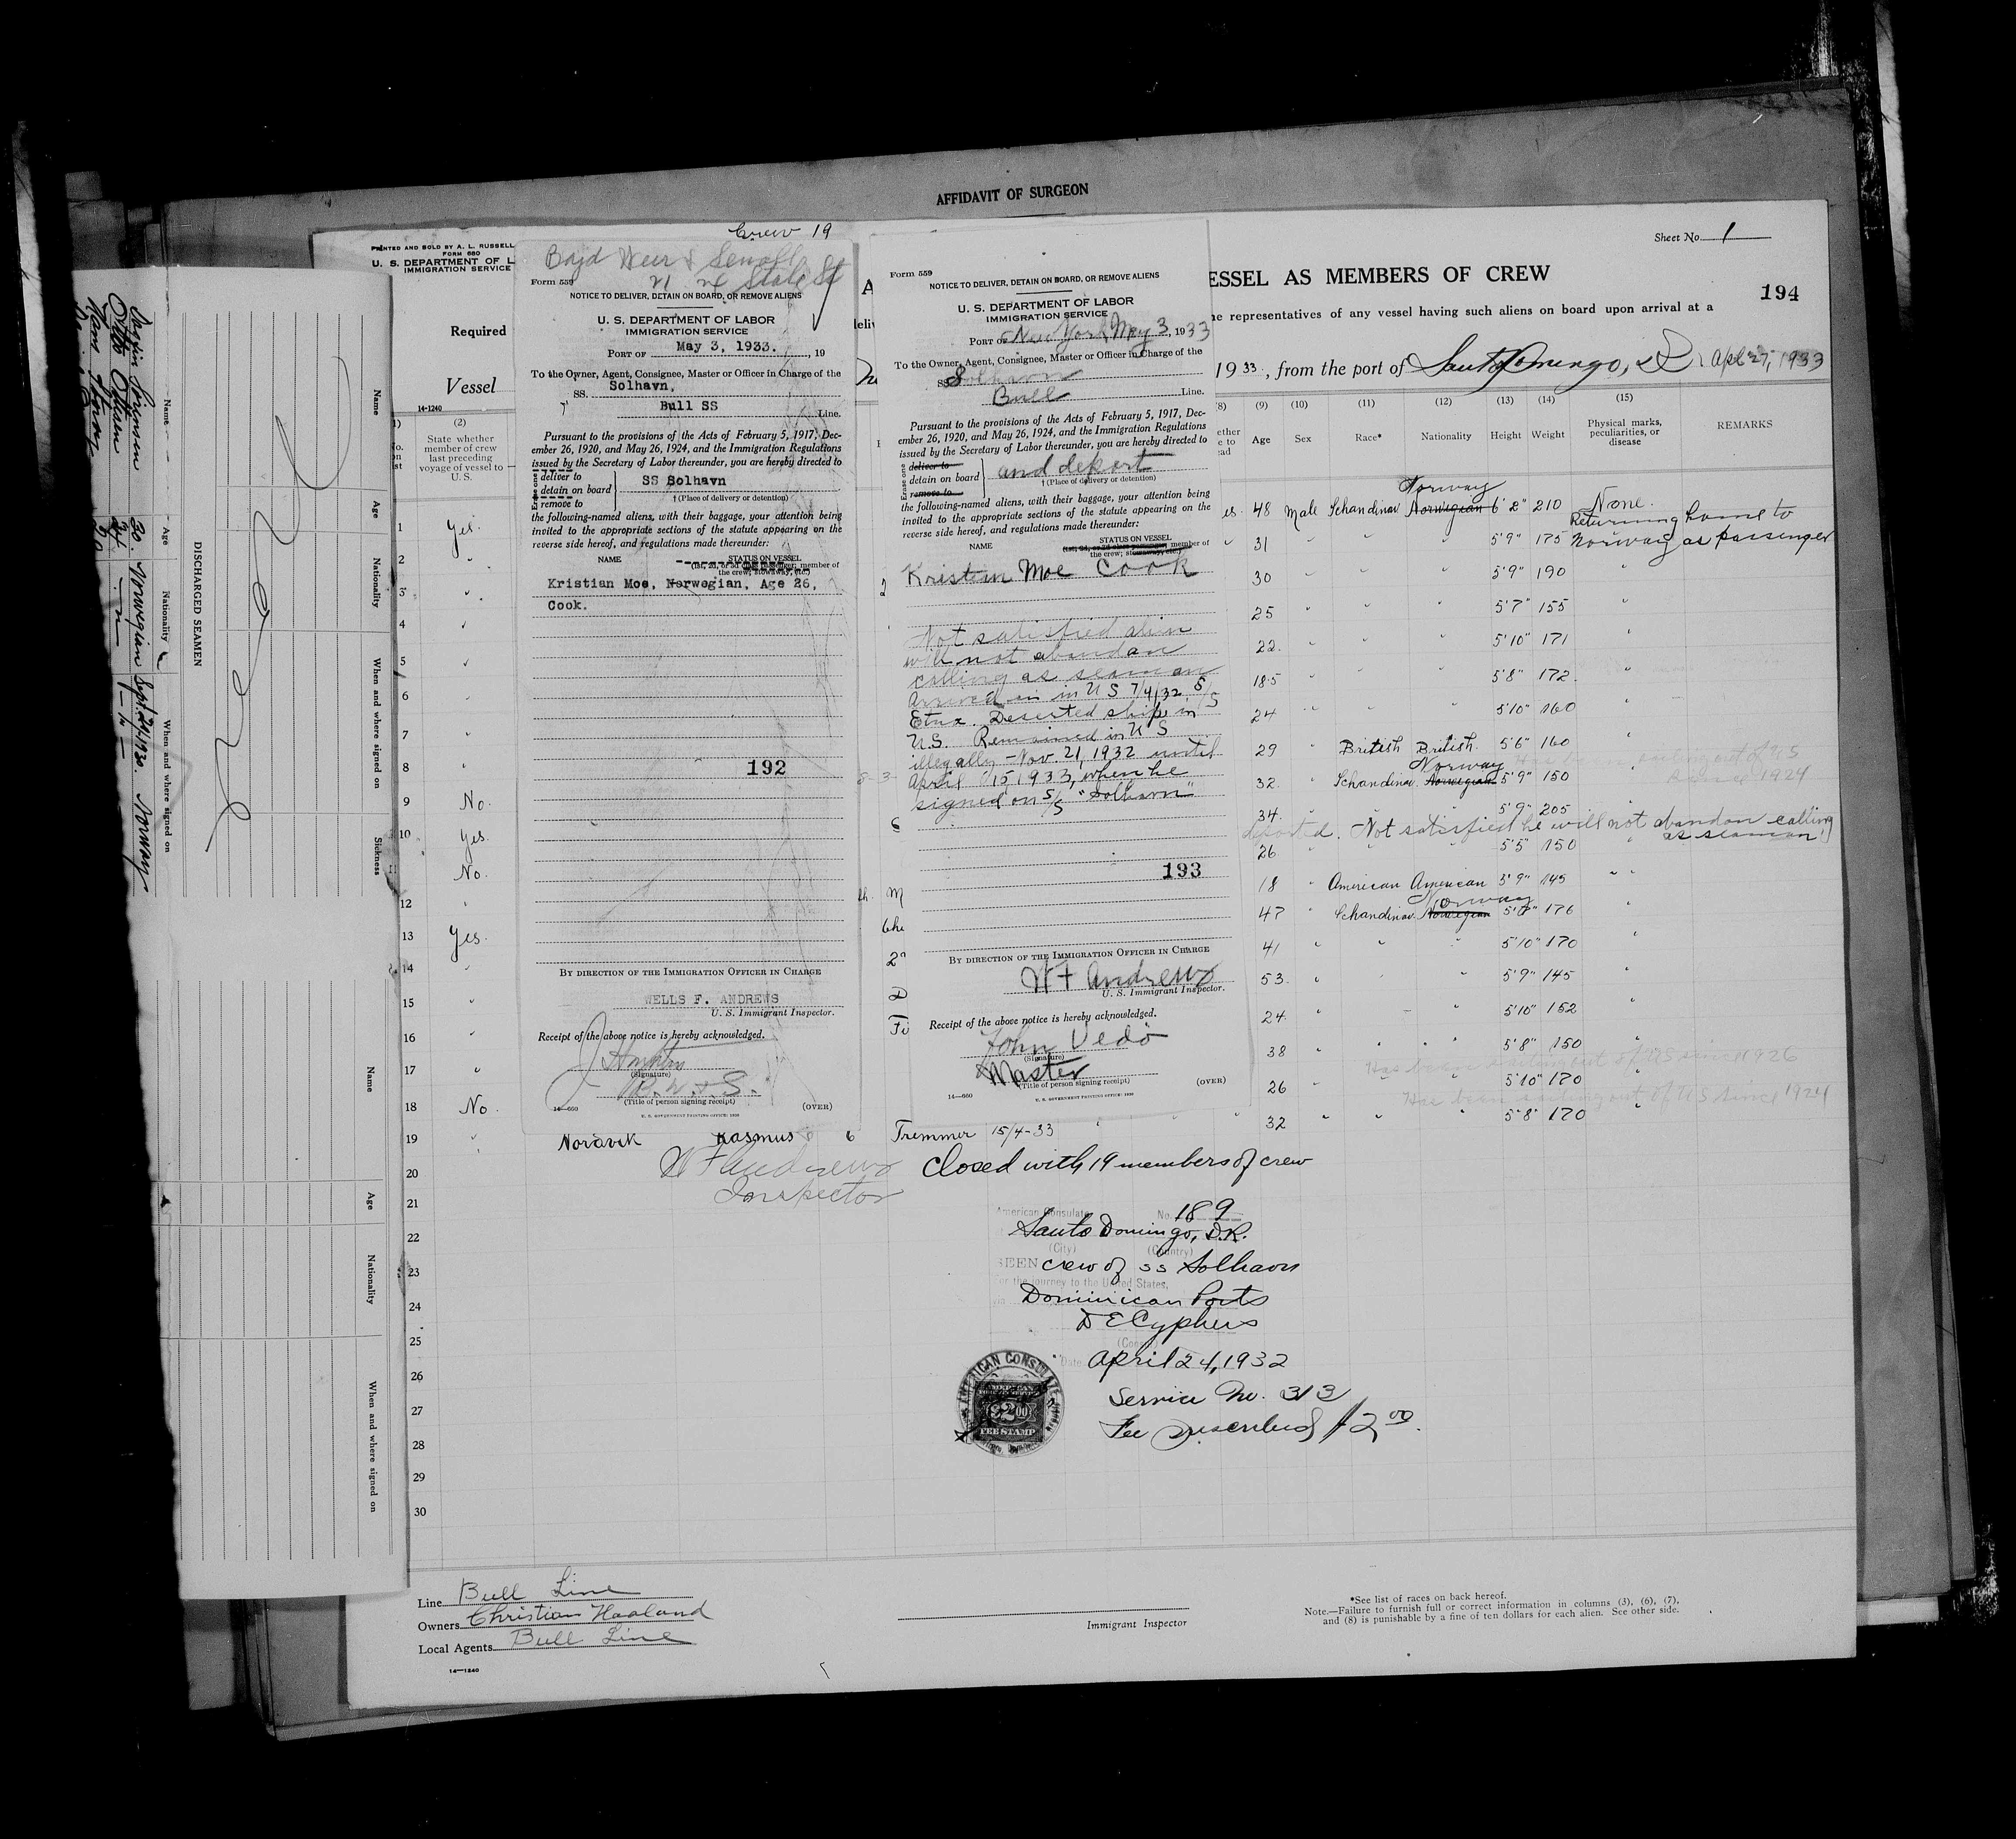 AFFIDAVIT OF SURGEON
Sheet No. 1
194
ESSEL AS MEMBERS OF CREW
e representatives of any vessel having such aliens on board upon arrival at a
1933, from the port of Santo Domingo, Apl 27, 1933
PRINTED AND SOLD BY A. L. RUSSELL
FORM 680
U. S. DEPARTMENT OF L
IMMIGRATION SERVICE
Required
Vessel
14-1240
Crew 19
Boyd Weir &
21 State St
Form 559
NOTICE TO DELIVER, DETAIN ON BOARD, OR REMOVE ALIENS
U. S. DEPARTMENT OF LABOR
IMMIGRATION SERVICE
PORT OF May 3, 1933. , 19
To the Owner, Agent, Consignee, Master or Officer in Charge of the
SS. Solhavn,
Bull SS Line.
Pursuant to the provisions of the Acts of February 5, 1917, Dec-
ember 26, 1920, and May 26, 1924, and the Immigration Regulations
issued by the Secretary of Labor thereunder, you are hereby directed to
Erase one
deliver to
detain on board SS Solhavn
remove to
†(Place of delivery or detention)
the following-named aliens, with their baggage, your attention being
invited to the appropriate sections of the statute appearing on the
reverse side hereof, and regulations made thereunder:
NAME STATUS ON VESSEL
(1st, 2d, or 3d class passenger; member of
the crew; stowaway, etc.)
Kristian Moe, Norwegian, Age 26,
Cook.
192
BY DIRECTION OF THE IMMIGRATION OFFICER IN CHARGE
WELLS F. ANDREWS
U. S. Immigrant Inspector.
Receipt of the above notice is hereby acknowledged.
(Signature)
B. W. & S.
(Title of person signing receipt)
14—660
U. S. GOVERNMENT PRINTING OFFICE: 1930
(OVER)
Form 559
NOTICE TO DELIVER, DETAIN ON BOARD, OR REMOVE ALIENS
U. S. DEPARTMENT OF LABOR
IMMIGRATION SERVICE
PORT OF New York, May 3, 1933
To the Owner, Agent, Consignee, Master or Officer in Charge of the
SS Solhavn
Bull Line.
Pursuant to the provisions of the Acts of February 5, 1917, Dec-
ember 26, 1920, and May 26, 1924, and the Immigration Regulations
issued by the Secretary of Labor thereunder, you are hereby directed to
Erase one
deliver to
detain on board and deport
remove to
†(Place of delivery or detention)
the following-named aliens, with their baggage, your attention being
invited to the appropriate sections of the statute appearing on the
reverse side hereof, and regulations made thereunder:
NAME STATUS ON VESSEL
(1st, 2d, or 3d class passenger, member of
the crew; stowaway, etc.)
Kristian Moe Cook
Not satisfied alien
will not abandon
calling as seaman
Arrived in U S 7/4/32 S/S
Etna. Deserted ship in
U.S. Remained in U S
illegally Nov. 21, 1932 until
April 15 1933, when he
signed on S/S "Solhavn"
193
BY DIRECTION OF THE IMMIGRATION OFFICER IN CHARGE
W F Andrews
U. S. Immigrant Inspector.
Receipt of the above notice is hereby acknowledged.
John Vedo
(Signature)
Master
(Title of person signing receipt)
14—660
U. S. GOVERNMENT PRINTING OFFICE: 1930
(OVER)
(2) State whether member of crew last preceding voyage of vessel to U. S.
(8)
(9) Age
(10) Sex
(11) Race*
(12) Nationality
(13) Height
(14) Weight
(15) Physical marks, peculiarities, or disease
REMARKS
1 Yes. 48 Male Schandinav Norway Norwegian 6'2" 210 None.
2 " 31 " " " 5'9" 175 Returning home to Norway as passenger
3 " 30 " " " 5'9" 190 "
4 " 25 " " " 5'7" 155 "
5 " 22 " " " 5'10" 171 "
6 " 18.5 " " " 5'8" 172 "
7 " 24 " " " 5'10" 160
8 " 29 " British British 5'6" 160 "
9 No. 32 Schandinav. Norway Norwegian 5'9" 150 " out of US since 1924
10 Yes. 34 " 5'9" 205 "
deported. Not satisfied he will not abandon calling as seaman
11 No. 26 " " " 5'5 150 "
12 " 18 " American American 5'9" 145 " "
13 Yes. 47 " Schandinav. Norway Norwegian 176 "
14 " 41 " " " 5'10" 170 "
15 " 53 " " " 5'9" 145 "
16 " 24 " " " 5'10" 152 "
17 " 38 " " " 5'8" 150 "
Has been sailing out of US since 1926
18 No. 26 " " " 5'10" 170
Has been sailing out of US since 1924
19 " Nordvik Rasmus 6 Tremmer 15/4-33 " " 32 " " " 5'8" 170 "
20
W F Andrews
Inspector
Closed with 19 members of crew
21
22
23
24
25
26
27
28
29
30
American Consulate No. 189
Santo Domingo, D.R.
(City) (Country)
SEEN crew of SS Solhavn
For the journey to the United States,
Dominican Ports
D E Cyphers
Date April 24, 1932
Service No. 313
Fee prescribed $2.00
AMERICAN CONSULATE
$2.00
FEE STAMP
Line Bull Line
Owners Christian Haaland
Local Agents Bull Line
14—1240
Immigrant Inspector
*See list of races on back hereof.
Note.—Failure to furnish full or correct information in columns (3), (6), (7),
and (8) is punishable by a fine of ten dollars for each alien. See other side.
DISCHARGED SEAMEN
Name Age Nationality When and where signed on
Otto Olsen
20. Norwegian Sept 24/1930. Norway
Name Age Nationality When and where signed on Sickness
Name Age Nationality When and where signed on